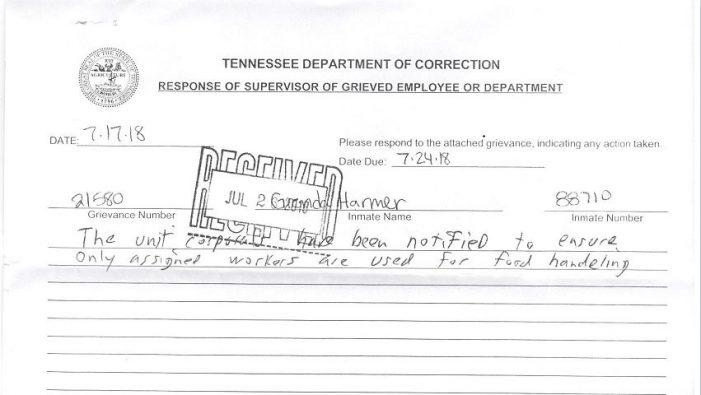 TENNESSEE DEPARTMENT OF CORRECTION
RESPONSE OF SUPERVISOR OF GRIEVED EMPLOYEE OR DEPARTMENT
DATE: 7.17.18
Please respond to the attached grievance, indicating any action taken.
Date Due: 7.24.18
RECEIVED
JUL 2
21580 Harmer 88710
Grievance Number Inmate Name Inmate Number
The unit have been notified to ensure
Only assigned workers are used for food handeling